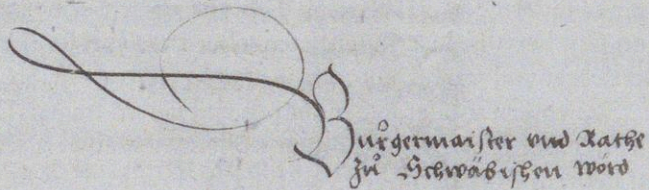 Burgermaister vnd Rathe
Zů Schwäbischen wörd